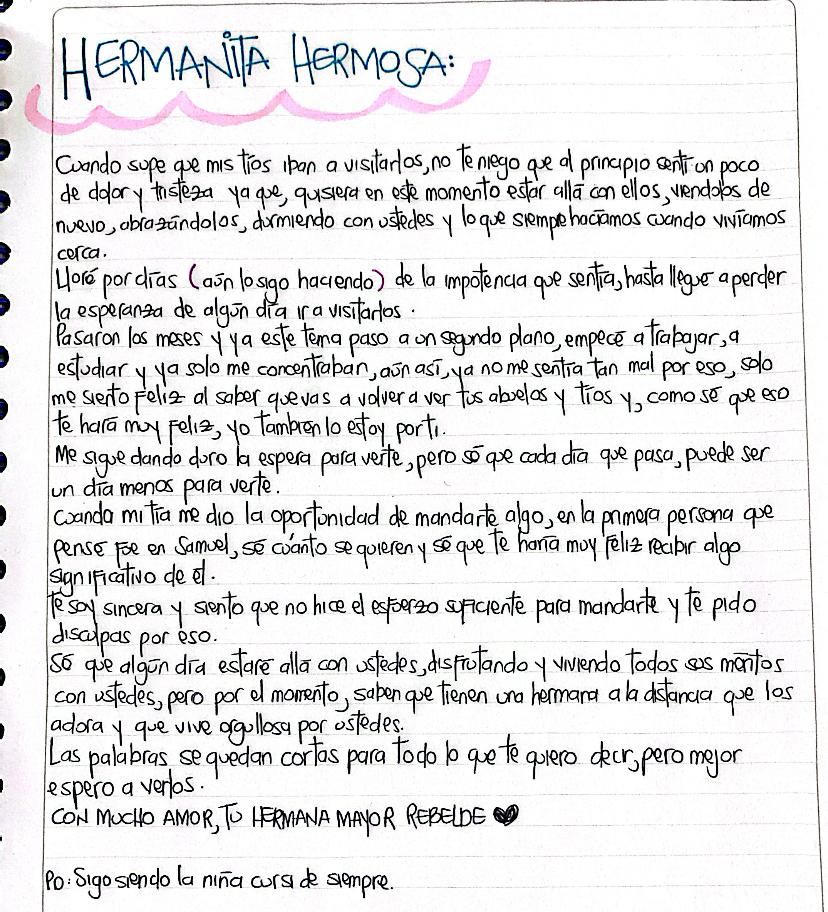 HERMANITA HERMOSA:
Cuando supe que mis tíos iban a visitarlos, no te niego que al principio sentí un poco
de dolor y tristeza ya que, quisiera en este momento estar allá con ellos, viendolos de
nuevo, abrazándolos, durmiendo con ustedes y lo que siempre hacíamos cuando vivíamos
cerca.
Lloré por días (aún lo sigo haciendo) de la impotencia que sentía, hasta llegué a perder
la esperanza de algún día ir a visitarlos.
Pasaron los meses y ya este tema paso a un segundo plano, empecé a trabajar, a
estudiar y ya solo me concentraban, aún así, ya no me sentía tan mal por eso, solo
me siento feliz al saber que vas a volver a ver tus abuelos y tíos y, como sé que eso
te hará muy feliz, yo también lo estoy por ti.
Me sigue dando duro la espera para verte, pero sé que cada día que pasa, puede ser
un día menos para verte.
Cuando mi tía me dio la oportunidad de mandarte algo, en la primera persona que
pensé fue en Samuel, sé cuánto se quieren y sé que te haría muy feliz recibir algo
significativo de él.
Te soy sincera y siento que no hice el esfuerzo suficiente para mandarte y te pido
disculpas por eso.
Sé que algún día estaré allá con ustedes, disfrutando y viviendo todos sus méritos
con ustedes, pero por el momento, saben que tienen una hermana a la distancia que los
adora y que vive orgullosa por ustedes.
Las palabras se quedan cortas para todo lo que te quiero decir, pero mejor
espero a verlos.
CON MUCHO AMOR, TU HERMANA MAYOR REBELDE ♥
PD: Sigo siendo la niña cursi de siempre.